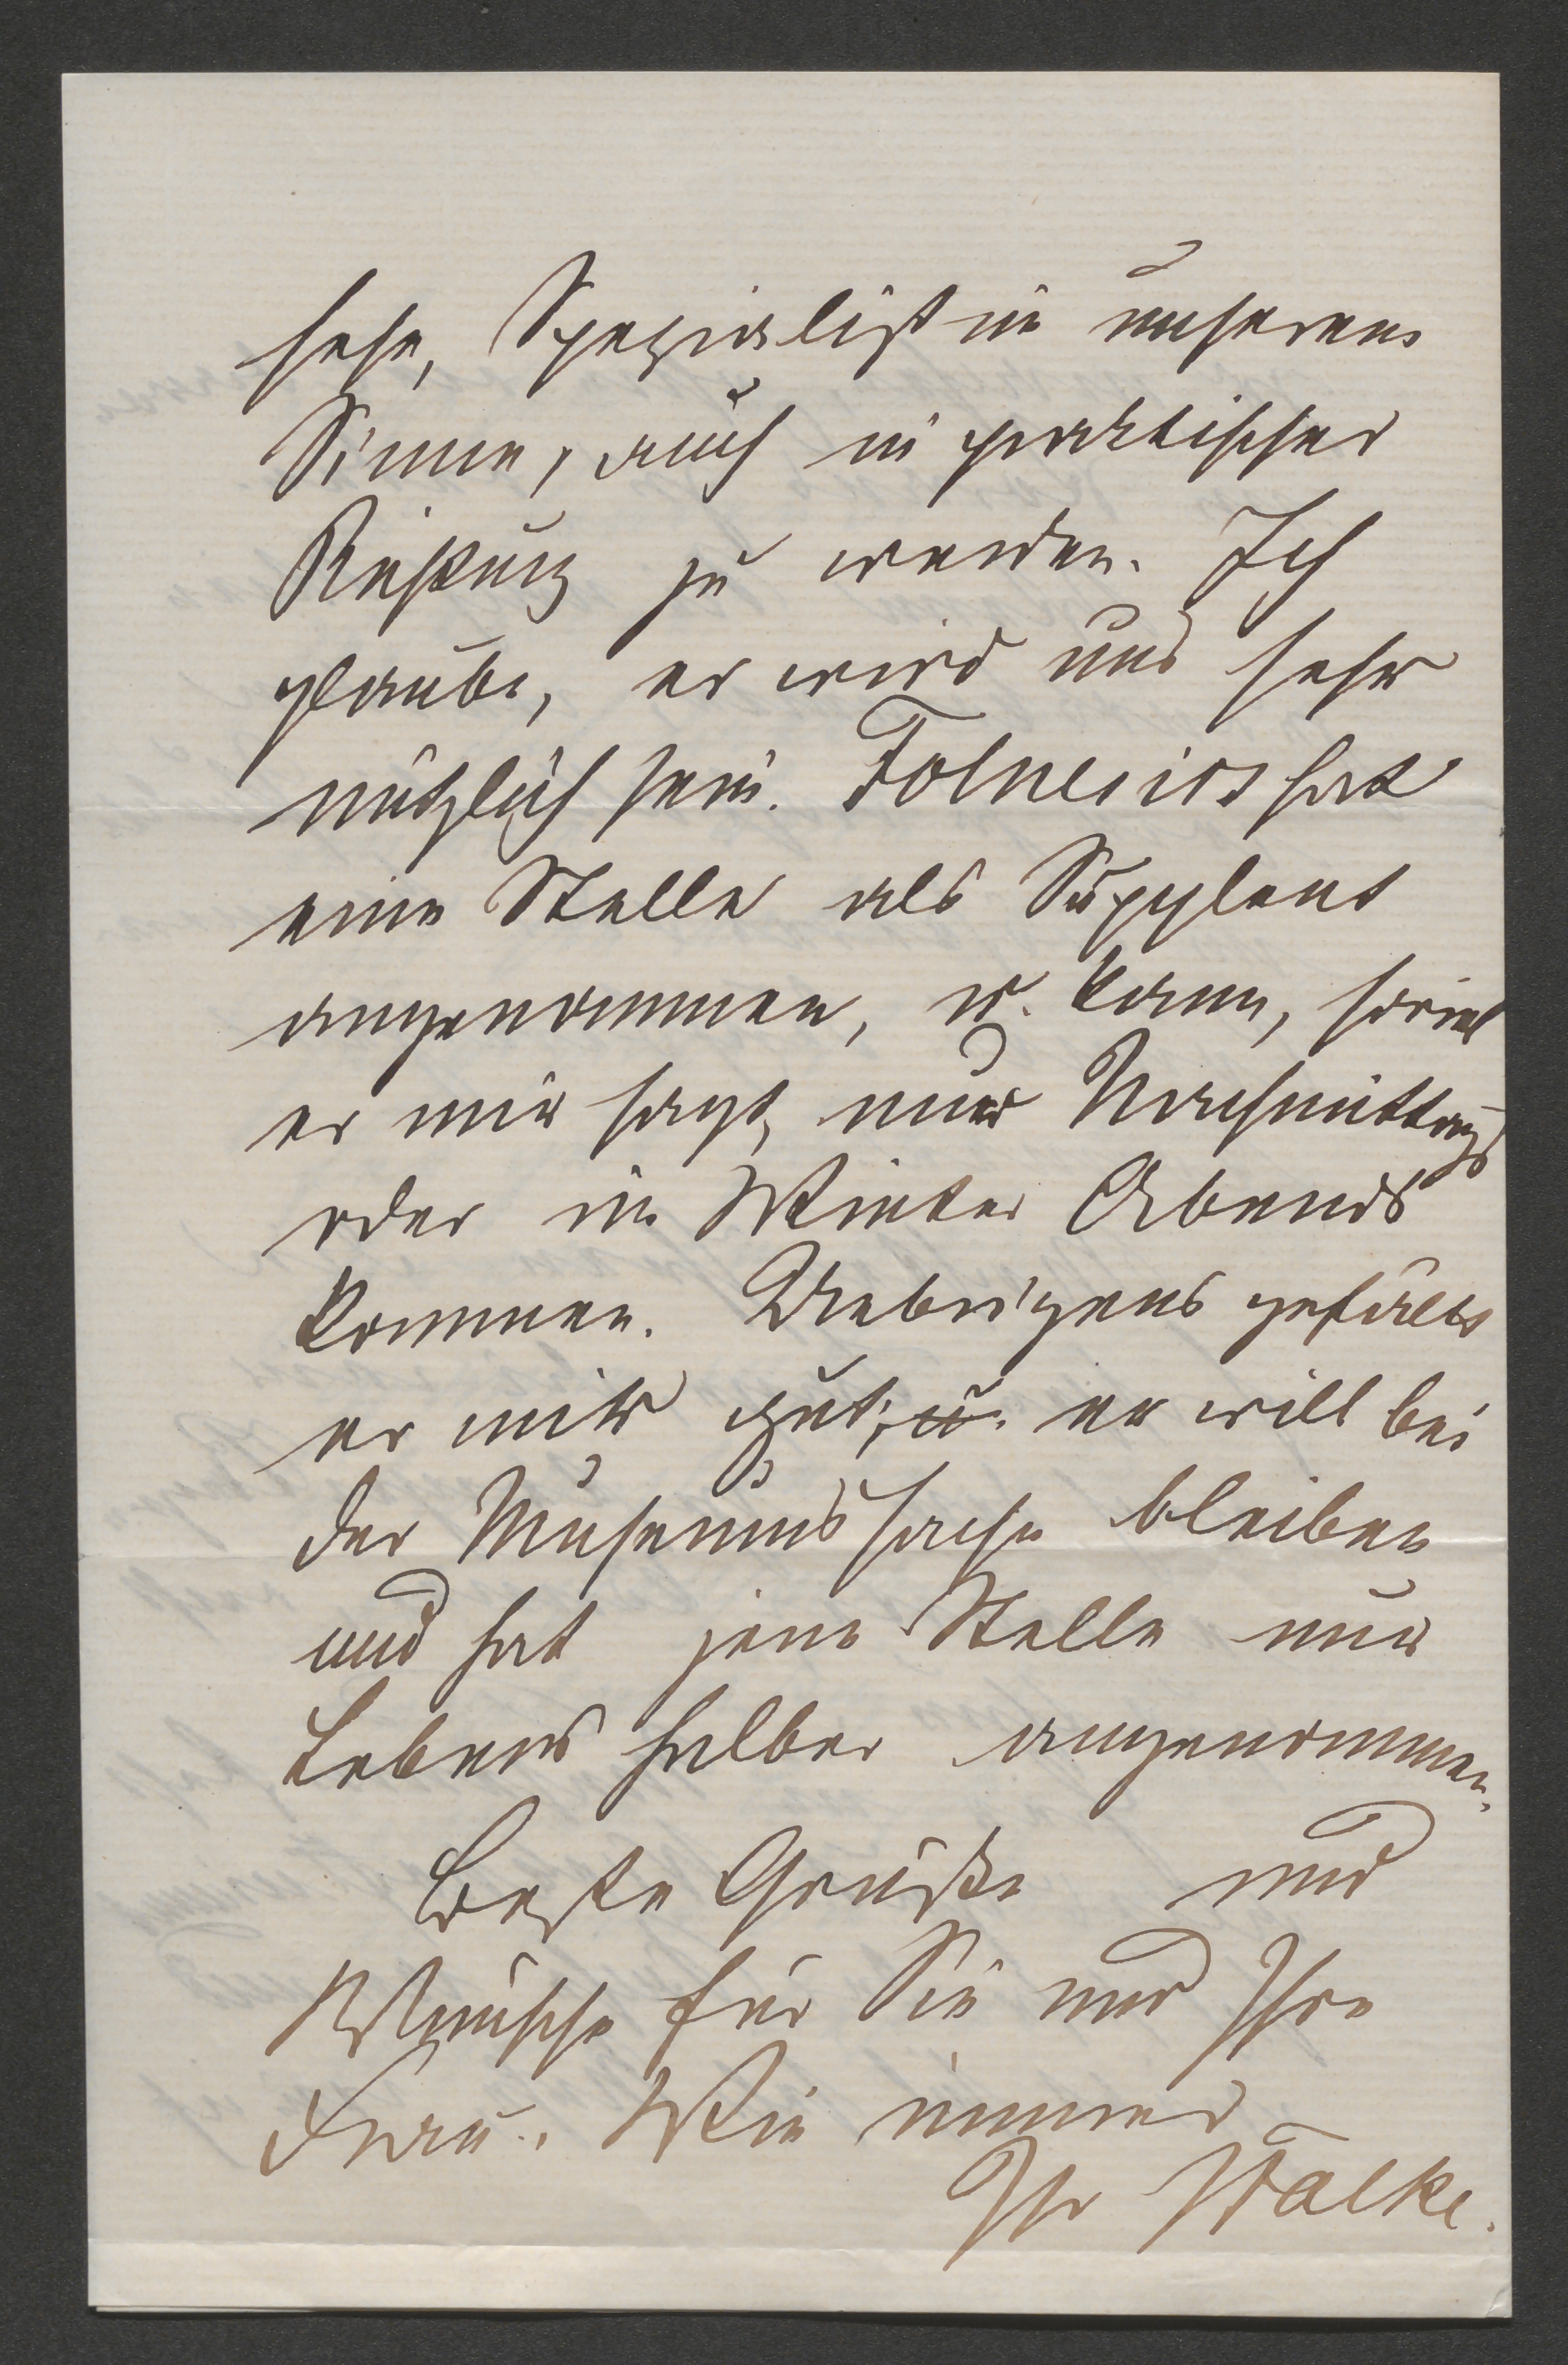 sehe, Spezialist in unserem
Sinne, auch in praktischer
Richtung zu werden. Ich
glaube, er wird uns sehr
nützlich sein. Folnesics hat
eine Stelle als Supplent
angenommen, u. kann, soviel
er mir sagt, nur Nachmittags
oder im Winter Abends
kommen. Uebrigens gefällt
er mir gut; u. er will bei
der Museumssache bleiben
und hat jene Stelle nur
Lebens halber angenommen.
Beste Grüße und
Wünsche für Sie und Ihre
Frau. Wie immer
Ihr Falke.